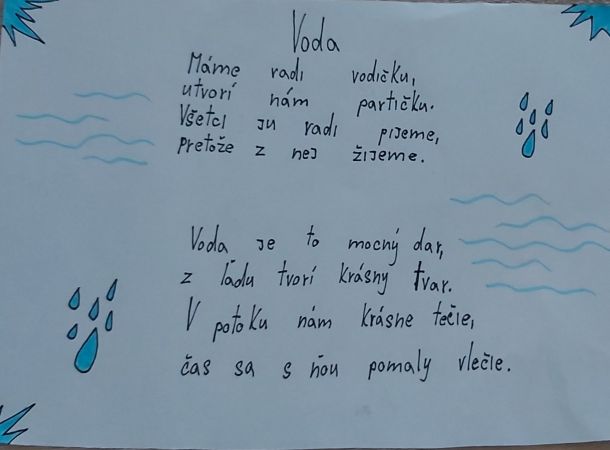 Voda
Máme radi vodičku,
utvorí nám partičku.
Všetci ju radi pijeme,
Pretože z nej žijeme.
Voda je to mocný dar,
z ľadu tvorí krásny tvar.
V potoku nám krásne tečie,
čas sa s ňou pomaly vlečie.